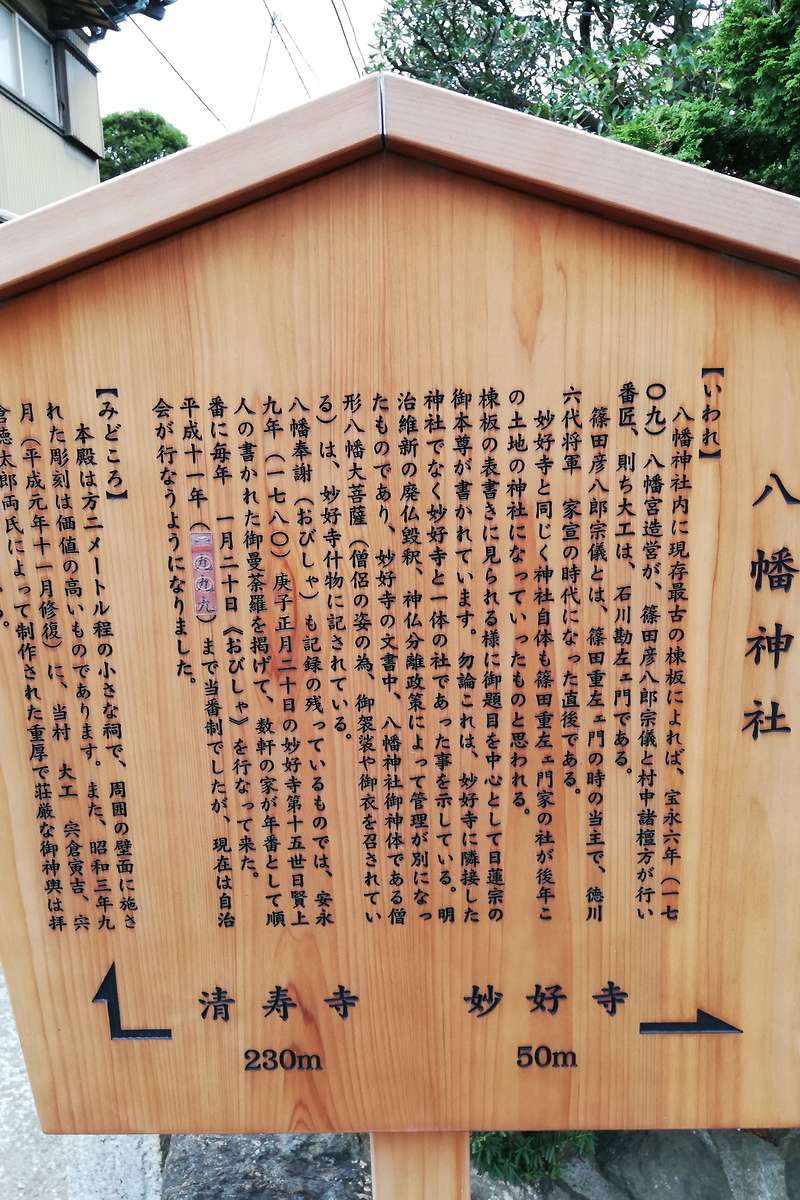 八幡神社
【いわれ】
八幡神社内に現存最古の棟板によれば、宝永六年（一七
〇九）八幡宮造営が、篠田彦八郎宗儀と村中諸檀方が行い
番匠、則ち大工は、石川勘左ェ門である。
篠田彦八郎宗儀とは、篠田重左ェ門の時の当主で、徳川
六代将軍　家宣の時代になった直後である。
妙好寺と同じく神社自体も篠田重左ェ門家の社が後年こ
の土地の神社になっていったものと思われる。
棟板の表書きに見られる様に御題目を中心として日蓮宗の
御本尊が書かれています。勿論これは、妙好寺に隣接した
神社でなく妙好寺と一体の社であった事を示している。明
治維新の廃仏毀釈、神仏分離政策によって管理が別になっ
たものであり、妙好寺の文書中、八幡神社御神体である僧
形八幡大菩薩（僧侶の姿の為、御袈裟や御衣を召されてい
る）は、妙好寺什物に記されている。
八幡奉謝（おびしゃ）も記録の残っているものでは、安永
九年（一七八〇）庚子正月二十日の妙好寺第十五世日賢上
人の書かれた御曼荼羅を掲げて、数軒の家が年番として順
番に毎年　一月二十日《おびしゃ》を行なって来た。
平成十一年（一九九九）まで当番制でしたが、現在は自治
会が行なうようになりました。
【みどころ】
本殿は方二メートル程の小さな祠で、周囲の壁面に施さ
れた彫刻は価値の高いものであります。また、昭和三年九
月（平成元年十一月修復）に、当村　大工　宍倉寅吉、宍
倉徳太郎両氏によって制作された重厚で荘厳な御神輿は拝
る。
妙好寺
50m
清寿寺
230m